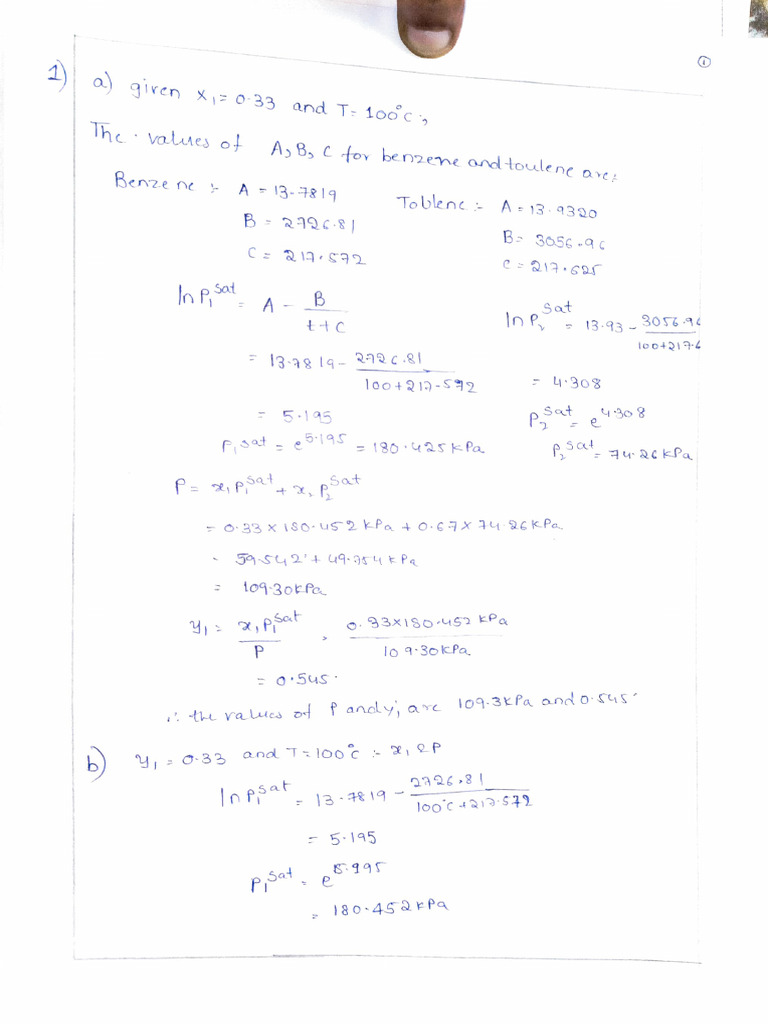 ①
1) a) given x₁ = 0.33 and T = 100°C,
The values of A, B, C for benzene and toulene are:
Benzene :- A = 13.7819 Toulene :- A = 13.9320
B = 2726.81 B = 3056.96
C = 217.572 C = 217.625
ln P₁^sat = A - B/(t+C) ln P₂^sat = 13.93 - 3056.96/(100+217.6
= 13.7819 - 2726.81/(100+217.572 = 4.308
= 5.195 P₂^sat = e^4.308
P₁^sat = e^5.195 = 180.425 kPa P₂^sat = 74.26 kPa
P = x₁P₁^sat + x₂P₂^sat
= 0.33 × 180.452 kPa + 0.67 × 74.26 kPa
= 59.542 + 49.754 kPa
= 109.30 kPa
y₁ = x₁P₁^sat/P , 0.33×180.452 kPa/109.30 kPa
= 0.545.
∴ the values of P and y, are 109.3 kPa and 0.545
b) y₁ = 0.33 and T = 100°C :- x₁ & P
ln P₁^sat = 13.7819 - 2726.81/(100°C+217.572
= 5.195
P₁^sat = e^5.195
= 180.452 kPa